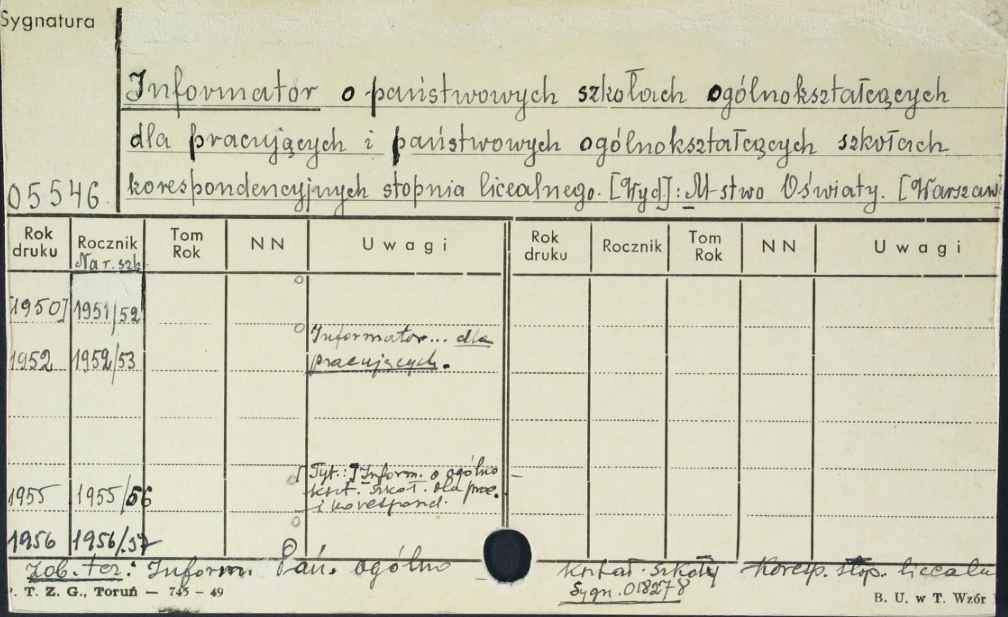 Sygnatura
Informator o państwowych szkołach ogólnokształcących
dla pracujących i państwowych ogólnokształcących szkołach
05546 korespondencyjnych stopnia licealnego. [Wyd]: M-stwo Oświaty. [Warszaw
Rok druku Rocznik Tom Rok NN Uwagi Rok druku Rocznik Tom Rok NN Uwagi
Na r. szk.
[1950] 1951/52
1952 1952/53 Informator... dla
pracujących.
1955 1955/56 Tyt.: Inform. o ogólno
kszt. szkoł. dla prac.
i korespond.
1956 1956/57
Zob. też: Inform. Pań. ogólno kształ. Szkoły Koresp. stop. licealn
Sygn. 018278
P. T. Z. G., Toruń — 745 – 49 B. U. w T. Wzór